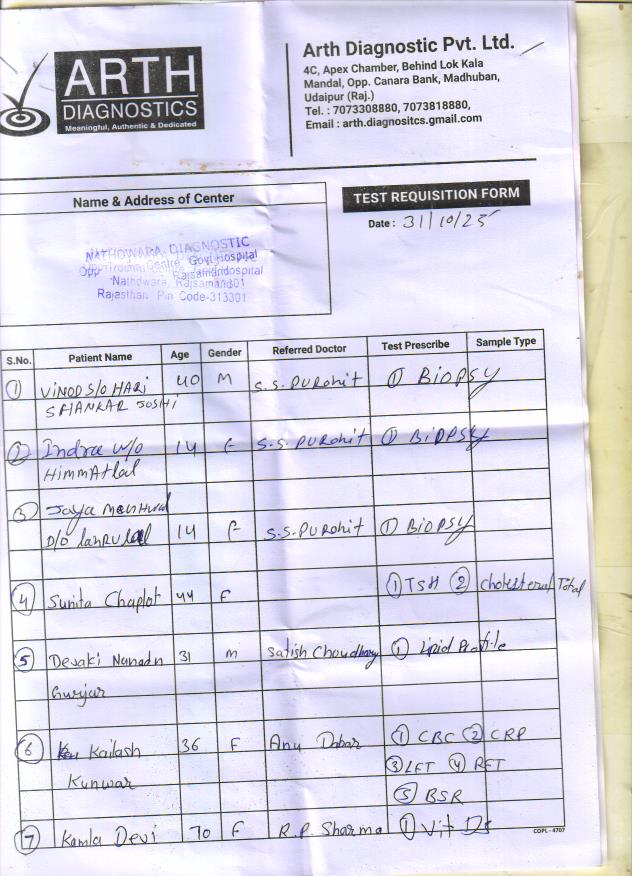 ARTH
DIAGNOSTICS
Meaningful, Authentic & Dedicated
Arth Diagnostic Pvt. Ltd.
4C, Apex Chamber, Behind Lok Kala
Mandal, Opp. Canara Bank, Madhuban,
Udaipur (Raj.)
Tel. : 7073308880, 7073818880,
Email : arth.diagnositcs.gmail.com
Name & Address of Center
TEST REQUISITION FORM
Date : 31/10/25
NATHDWARA DIAGNOSTIC
Govt Hospital
Nathdwara, Rajsamand
Rajasthan Pin Code-313301
S.No. Patient Name Age Gender Referred Doctor Test Prescribe Sample Type
1 VINOD S/O HARI 40 M S.S. PUROHIT 1 BIOPSY
SHANKAR JOSHI
2 Indra W/O 14 F S.S. PUROHIT 1 BIOPSY
HIMMATlal
3 Jaya
D/O 14 F S.S. PUROHIT 1 BIOPSY
4 Sunita Chaplot 44 F 1 TSH 2 Cholesterol Total
5 Devaki Nanadn 31 M Satish Choudhary 1 Lipid Profile
Gurjar
6 Kailash 36 F Anu Dabar 1 CBC 2 CRP
Kunwar 3 LFT 4 RFT
5 BSR
7 Kamla Devi 70 F R.P. Sharma 1 Vit
COPL - 4707